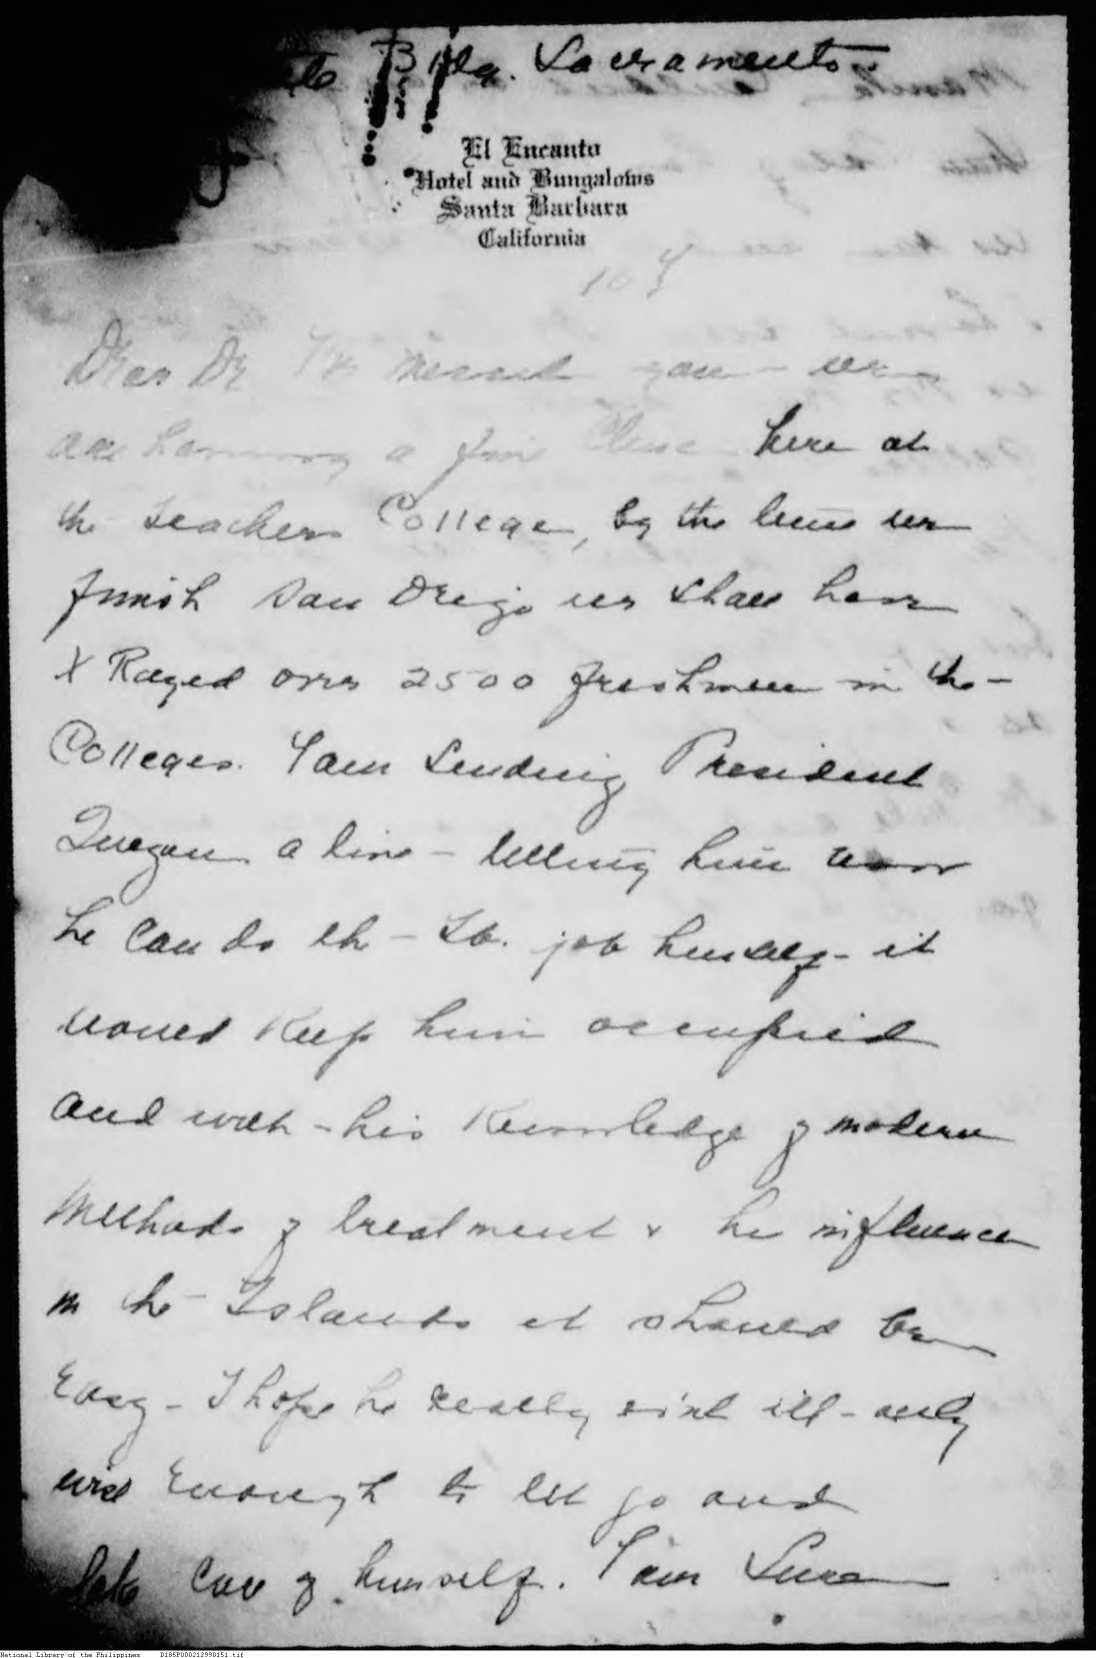 Bldg. Sacramento
El Encanto
Hotel and Bungalows
Santa Barbara
California
Dear Dr I'm you - we
are having a fine here at
the Teachers College, by the time we
finish San Diego we shall have
X Rayed over 2500 freshmen in the
Colleges. I am sending President
Quezon a line - telling him now
he can do the - Tb. job himself - it
would keep him occupied
and with - his knowledge of modern
methods of treatment & his influence
in the Islands it should be
easy - I hope he really isn't ill - only
wise enough to let go and
take care of himself. I am sure
National Library of the Philippines D185P000212990151.tif